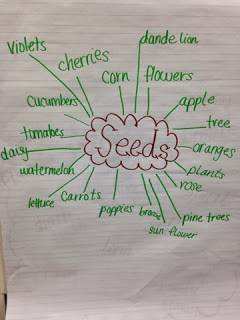 dandelion
violets
cherries
corn
flowers
apple
cucumbers
tree
tomatoes
Seeds
oranges
daisy
watermelon
plants
rose
lettuce
carrots
poppies
pine trees
sun flower